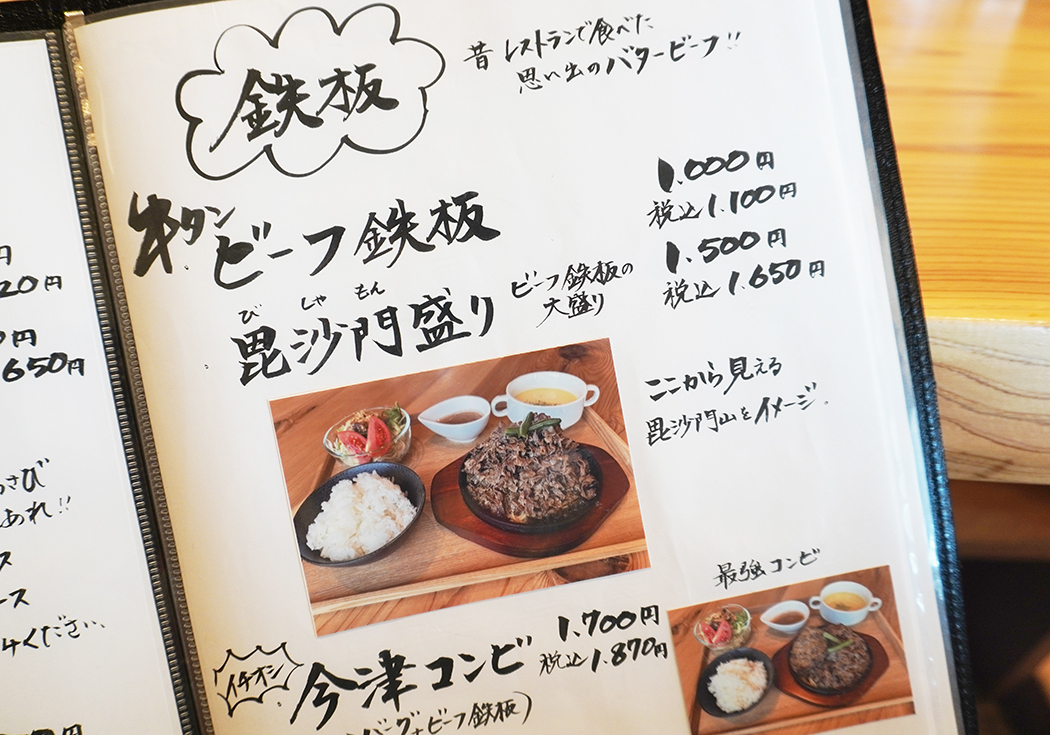 円
20円
円
650円
さび
あれ!!
ス
ース
ください、
円
鉄板
昔 レストランで食べた
思い出のバタービーフ!!
牛タン
ビーフ鉄板
1.000円
税込1.100円
びしゃもん
毘沙門盛り
ビーフ鉄板の
大盛り
1.500円
税込1.650円
ここから見える
毘沙門山をイメージ。
最強コンビ
イチオシ
今津コンビ
1.700円
税込1.870円
バーグ+ビーフ鉄板)